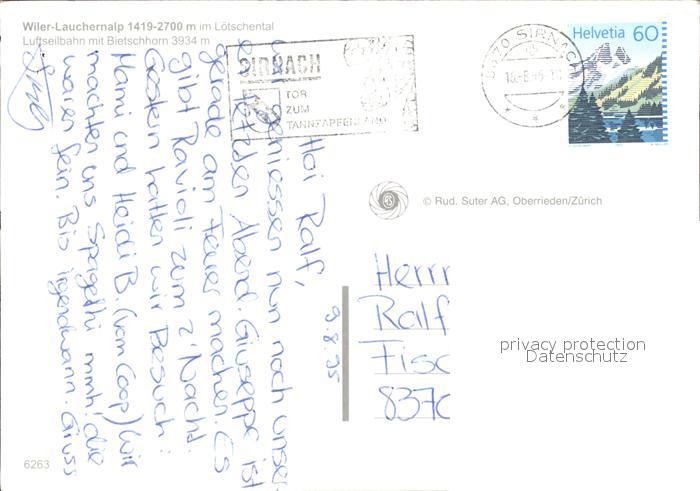 Wiler-Lauchernalp 1419-2700 m im Lötschental
Luftseilbahn mit Bietschhorn 3934 m
SIRNACH
TOR
ZUM
TANNZAPFENLAND
8370 SIRNACH
Helvetia 60
© Rud. Suter AG, Oberrieden/Zürich
9.8.95
Hoi Ralf,
wir geniessen nun noch unser-
en letzten Abend. Giuseppe ist
gerade am Feuer machen. Es
gibt Ravioli zum z'Nacht.
Gestern hatten wir Besuch:
Nami und Heidi B. (vom Coop) Wir
machten uns Spagetthi mmh! die
waren fein. Bis irgendwann. Gruss
Herrn
Ralf
Fisc
8370
privacy protection
Datenschutz
6263